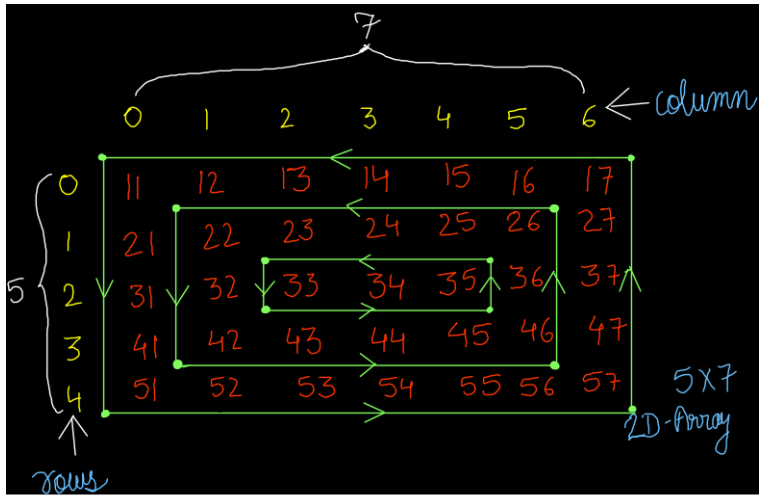 7
0 1 2 3 4 5 6 column
0 11 12 13 14 15 16 17
1 21 22 23 24 25 26 27
5 2 31 32 33 34 35 36 37
3 41 42 43 44 45 46 47
4 51 52 53 54 55 56 57
5X7
2D-Array
rows